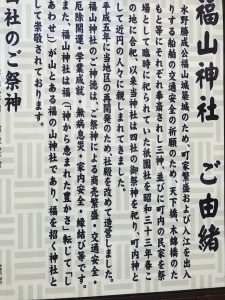 福山神社 ご由緒
水野勝成の福山城築城のため、町家整備および入江を出入
りする船舶の交通安全の祈願のため、天下橋、木綿橋のた
もと等にそれぞれ奉斎されし三神、並びに町内の民家を祭
場として臨時に祀られていた祇園社を昭和三十三年春こ
の地に合祀、以来当神社は四社の御祭神を祀り、町内神と
して近円の人々に親しまれてきました。
平成五年に当地区の再開発のため社殿を改めて造営しました。
福山神社のご神徳は、ご祭神による商売繁盛・交通安全・
厄除開運・学業成就・無病息災・家内安全・縁結び等です。
また、福山神社は福「神から恵まれた豊かさ」転じて「し
あわせ」が山とある福の山神社であり、福を招く神社と
して崇敬されております。
社のご祭神